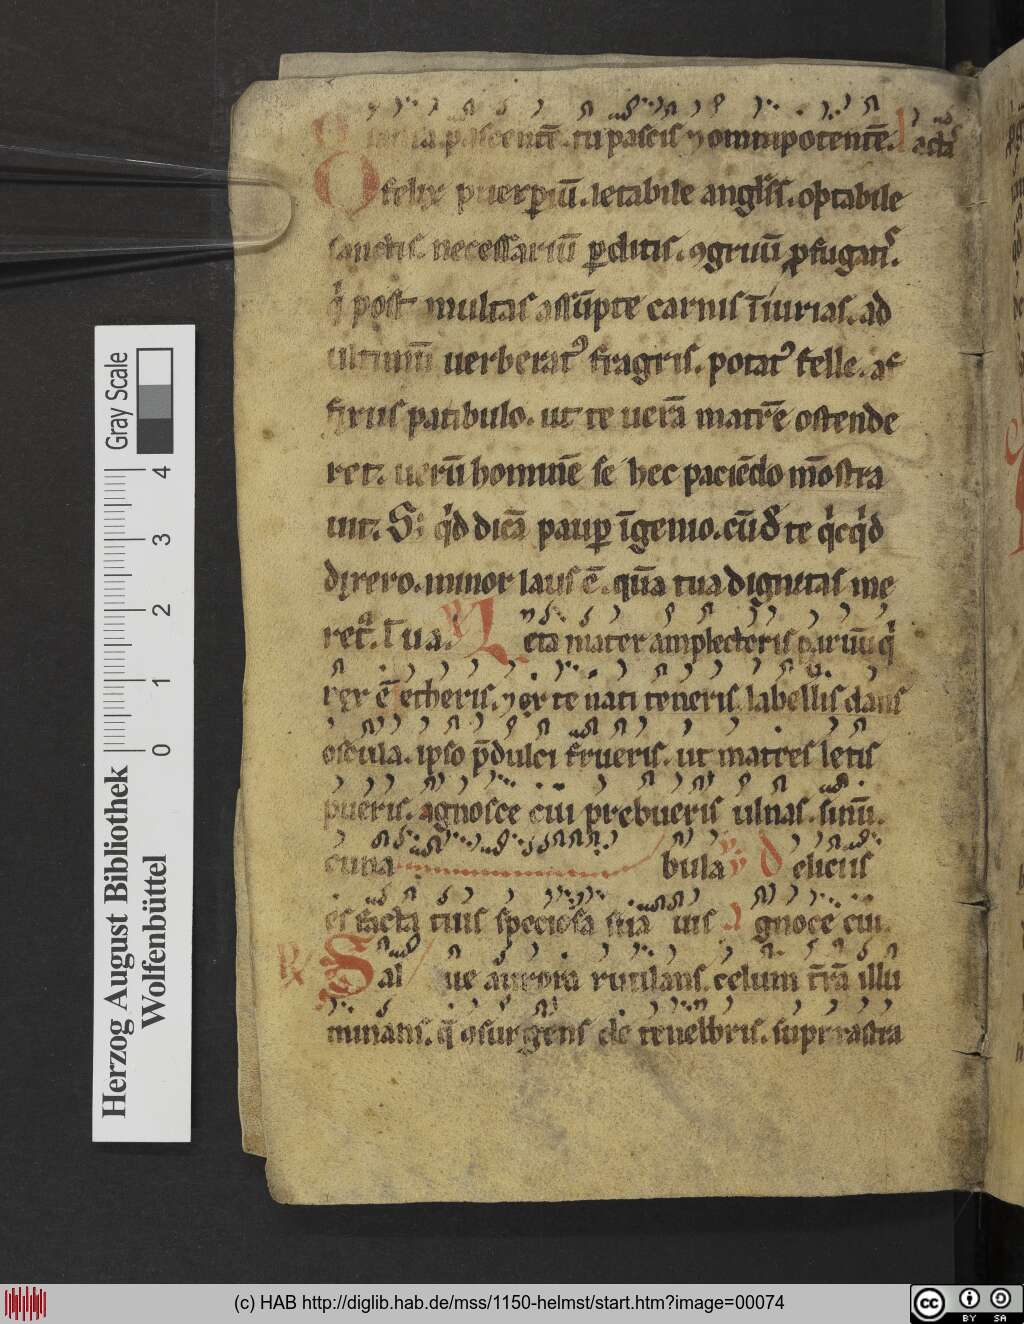 pascentē. tu pascis ⁊ omnipotentē. d actā
O felix puerꝑiū. letabile angl̄is. optabile
sanctis. necessariū ꝑditis. ꝯgruū ꝓfugatis.
q̇ post multas assūpte carnis īiurias. ad
ultimū uerberatꝰ fragris. potatꝰ felle. af
fixus patibulo. ut te uerā matrē ostende
ret. uerū hominē se hec paciēdo mōstra
uit. S; qͥd dicā pauꝑ īgenio. cū de te qͥcqͥd
dixero. minor laus ē. quā tua dignitas me
retᷓ. Tua. V Leta mater amplecteris paruū qͥ
rex ē etheris. ⁊ ex te nati teneris. labellis dans
oscula. ipso p̄dulci frueris. ut matres letis
pueris. agnosce cui prebueris ulnas. sinū.
cuna bula V Deliciis
es facta tuis speciosa sua uis Agnoce cui.
R Sal ue aurora rutilans. celum t̄rā illu
minans. q̄ ꝯsurgens de tenebris. supr astra
Herzog August Bibliothek
Wolfenbüttel
Gray Scale
0 1 2 3 4
(c) HAB http://diglib.hab.de/mss/1150-helmst/start.htm?image=00074
cc BY SA